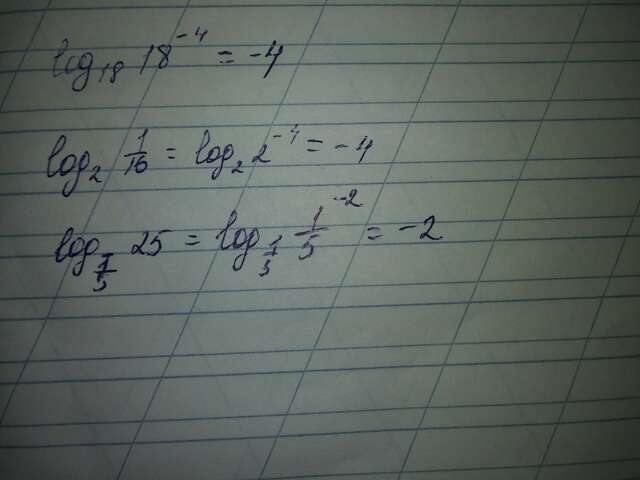 log₁₈ 18⁻⁴ = -4
log₂ 1/16 = log₂ 2⁻⁴ = -4
log_{1/5} 25 = log_{1/5} 1/5⁻² = -2